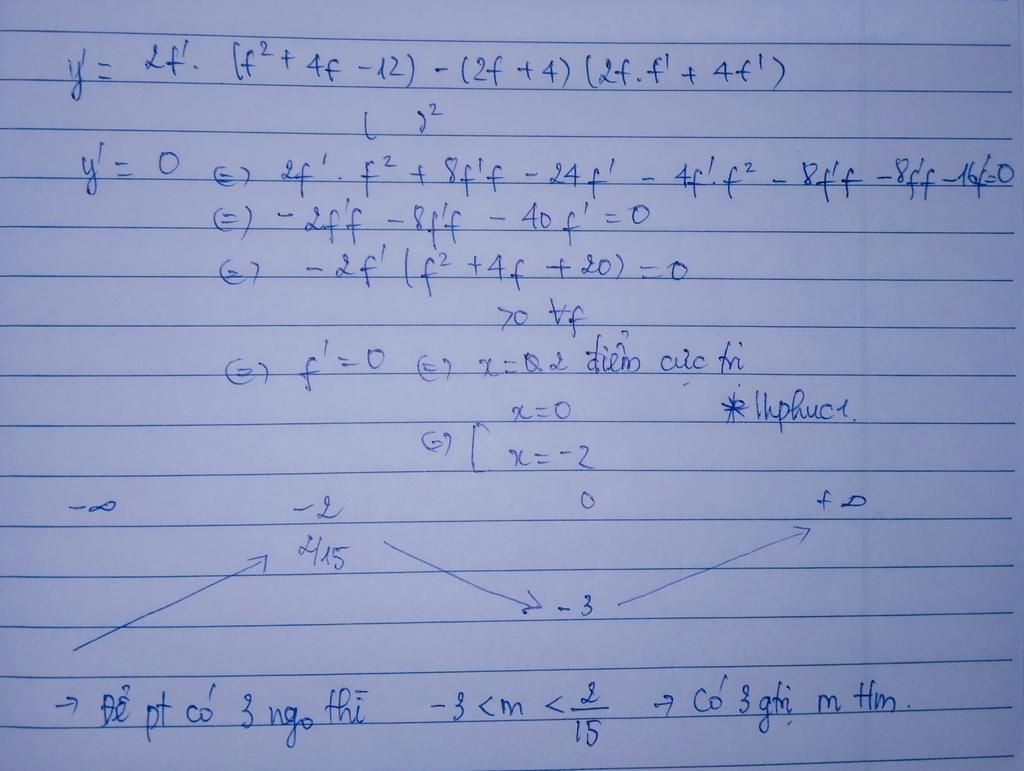 y' = 2f'. (f² + 4f - 12) - (2f + 4)(2f.f' + 4f')
( )²
y' = 0 (=) 2f'. f² + 8f'f - 24f' - 4f'.f² - 8f'f - 8f'f - 16f'=0
(=) - 2f'f - 8f'f - 40f' = 0
(=) - 2f' (f² + 4f + 20) = 0
>0 ∀f
(=) f' = 0 (=) x = 2 điểm cực trị
x=0 * lhphuc1.
(=) [ x = -2
-∞ -2 0 +∞
2/15
-3
→ Để pt có 3 ngo thì -3 < m < 2/15 → Có 3 gtrị m tmn.